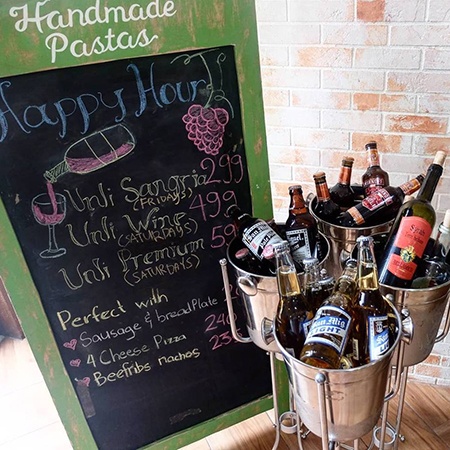 Handmade
Pastas
Happy Hour
Unli Sangria 299
(FRIDAYS)
Unli Wine 499
(SATURDAYS)
Unli Premium
(SATURDAYS)
Perfect with
Sausage & bread Plate
4 Cheese Pizza
Beefribs nachos
San Mig
LIGHT